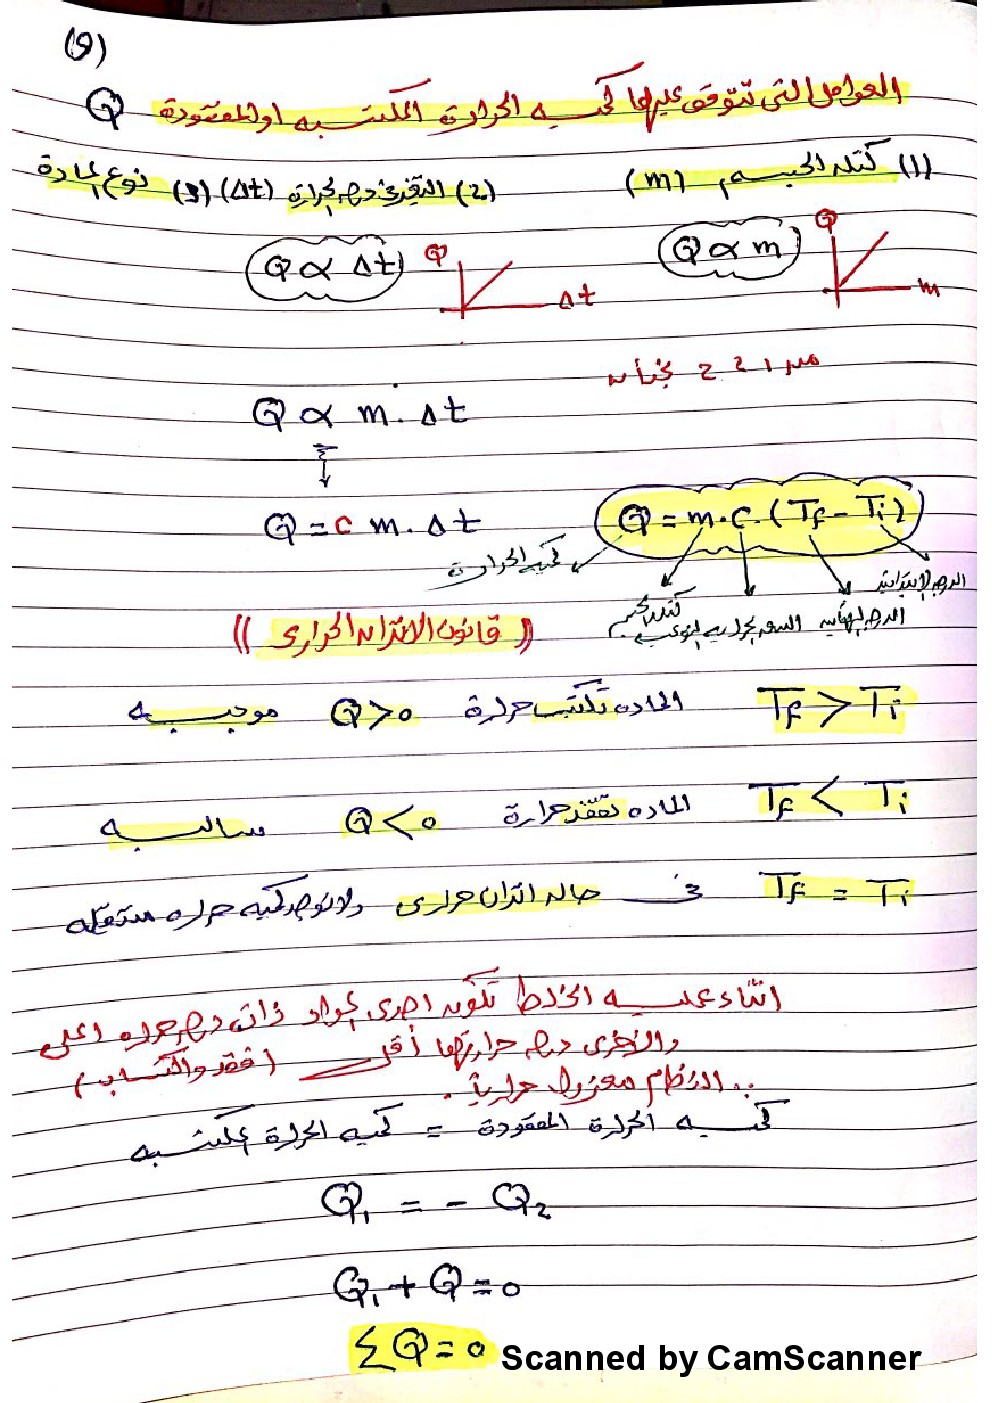 (9)
العوامل التي تتوقف عليها كمية الحرارة المكتسبه او المفقودة Q
(1) كتله الجسم (m) (2) التغير في درجه الحرارة (Δt) (3) نوع المادة
Q ∝ m Q m
Q ∝ Δt Q Δt
من 1 و 2 نجد أن
Q ∝ m . Δt
Q = c m . Δt
Q = m . c . (Tf - Ti)
كميه الحرارة كتله الجسم السعه الحراريه النوعيه الدرجه النهائيه الدرجه الابتدائيه
(( قانون الاتزان الحرارى ))
Tf > Ti الماده تكتسب حرارة Q > 0 موجبــه
Tf < Ti الماده تفقد حرارة Q < 0 سالبــه
Tf = Ti فى حاله اتزان حرارى ولا توجد كميه حراره منتقله
اثناء عمليه الخلط تكون احدى المواد ذات درجه حراره اعلى
والأخرى درجه حرارتها أقل (فقد واكتساب)
∴ النظام معزول حرارياً .
كميه الحرارة المفقودة = كميه الحرارة المكتسبه
Q₁ = - Q₂
Q₁ + Q = 0
Σ Q = 0
Scanned by CamScanner